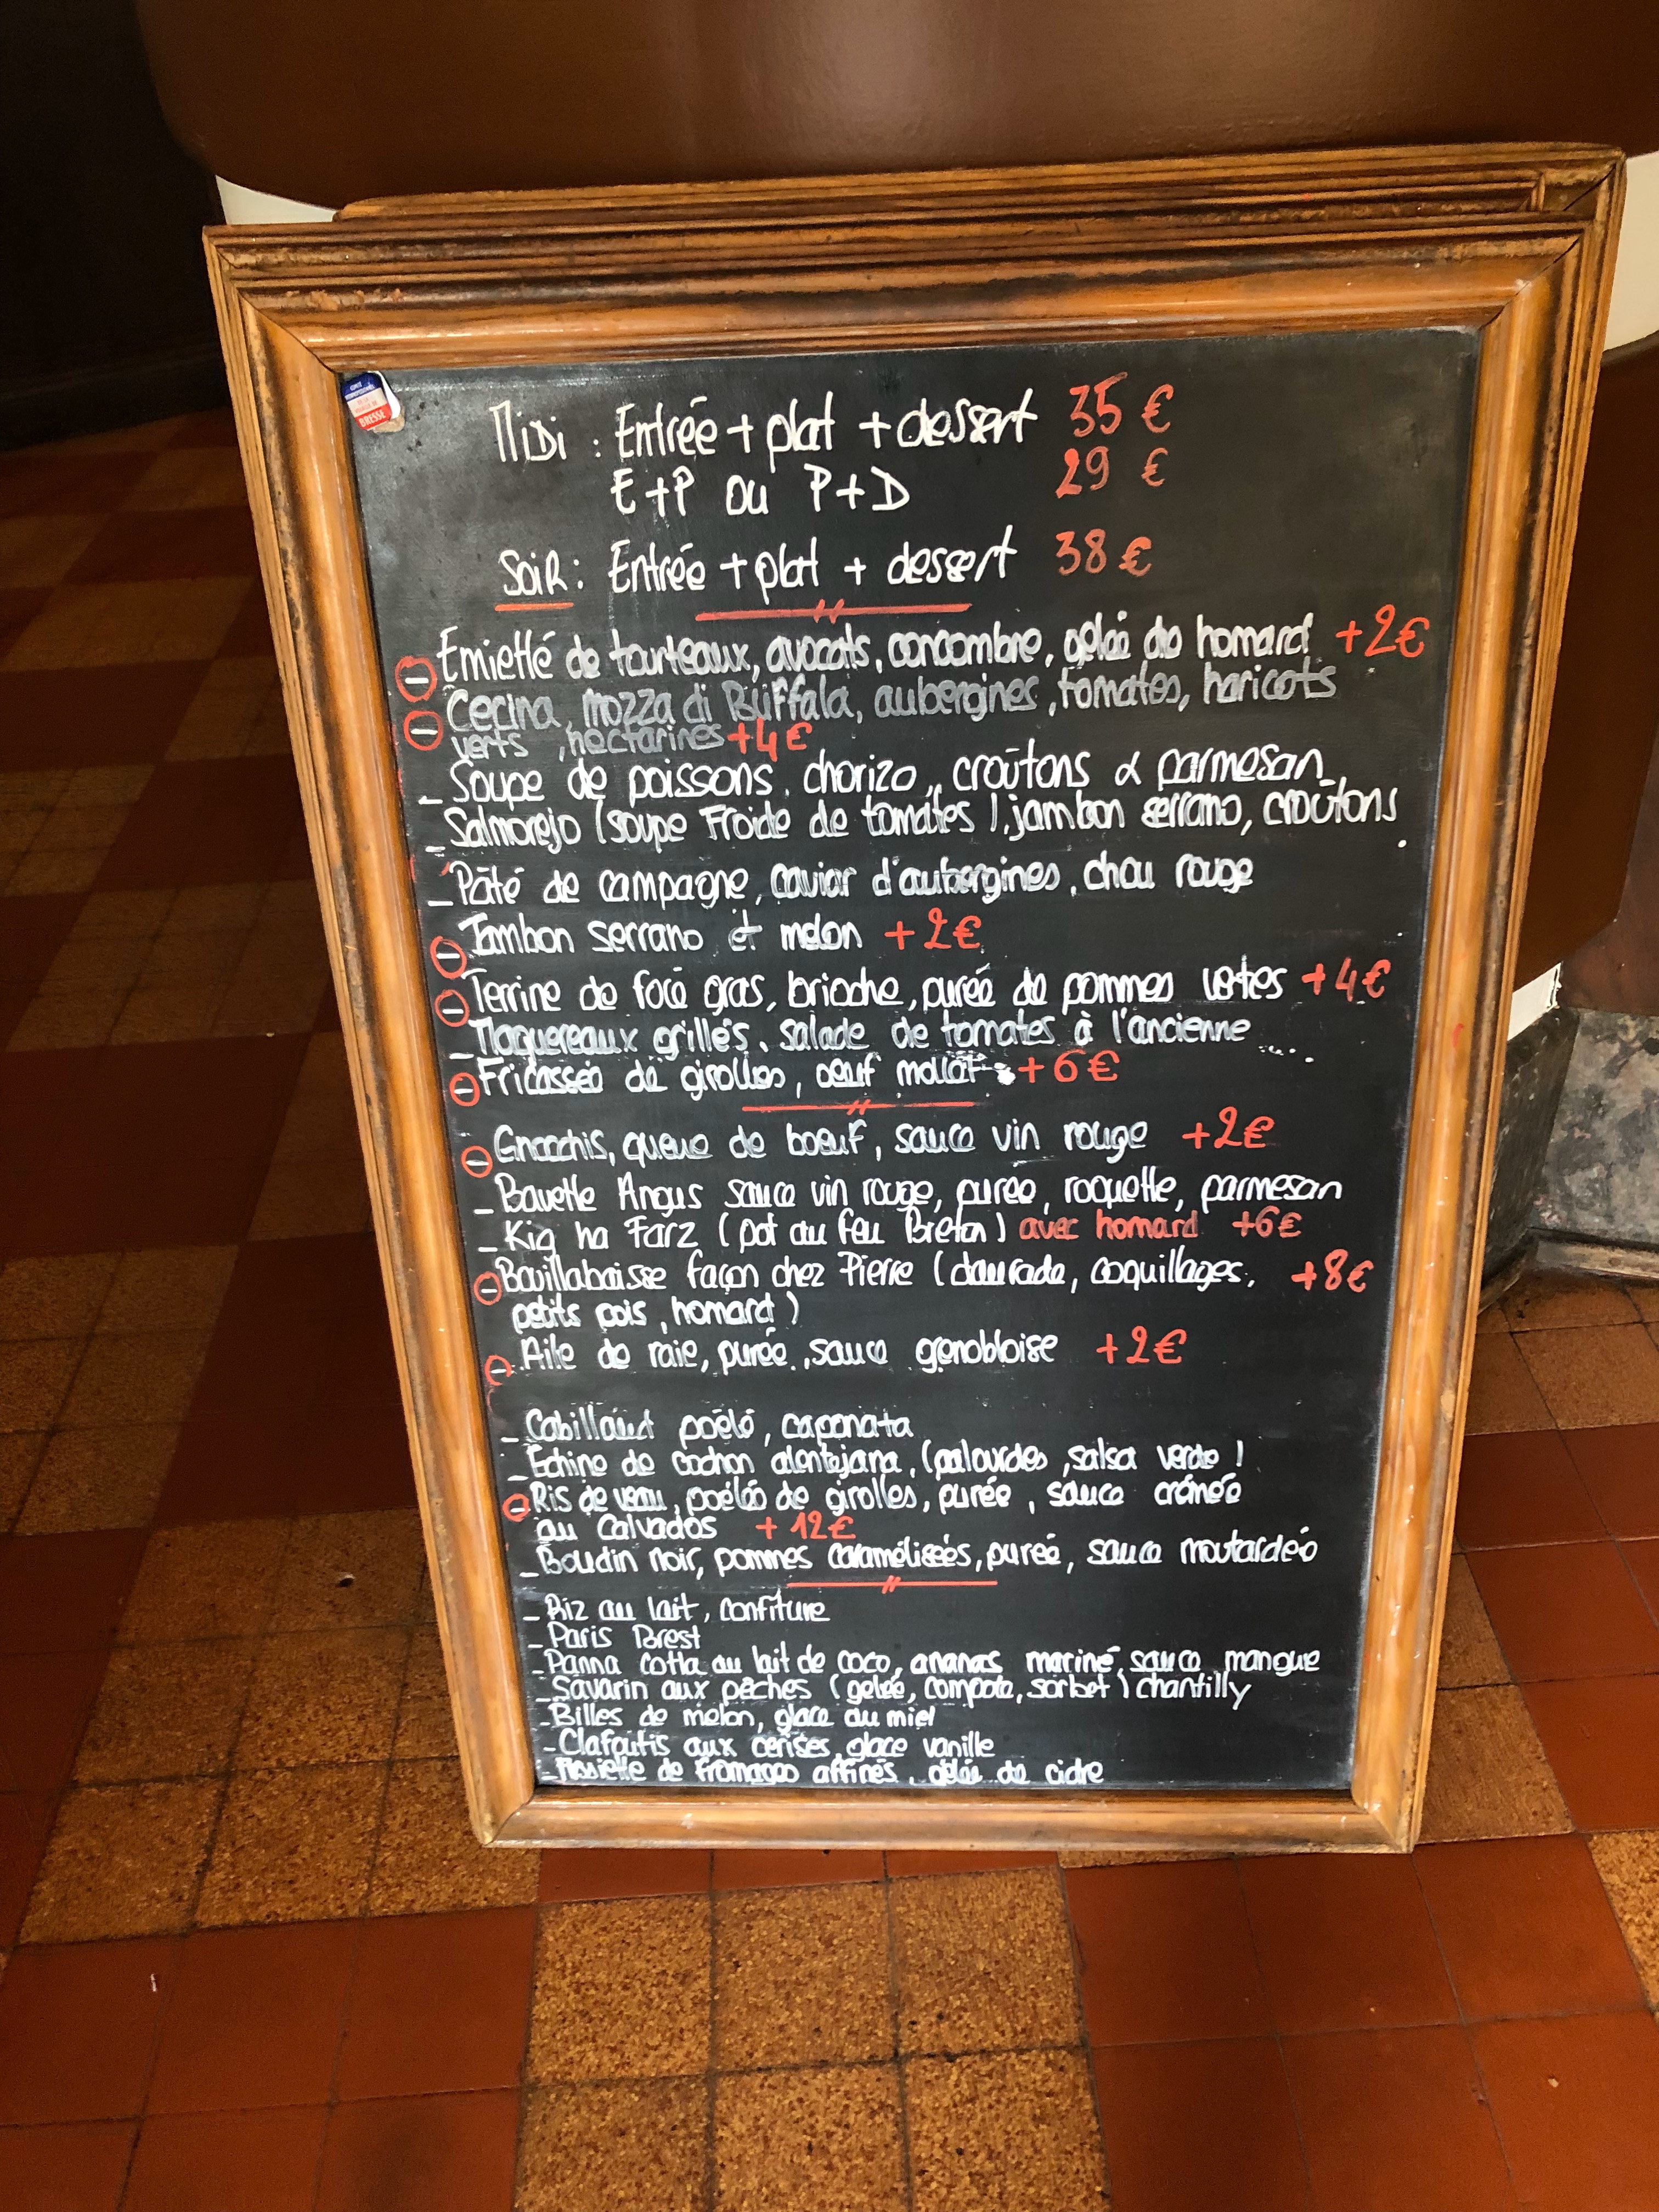 BRESSE
MiDi : Entrée + plat + dessert 35 €
E+P ou P+D 29 €
SoiR : Entrée + plat + dessert 38 €
- Emietté de tourteaux, avocats, concombre, gelée de homard +2€
- Cecina, mozza di Buffala, aubergines, tomates, haricots
verts, nectarines +4€
- Soupe de poissons, chorizo, croûtons & parmesan
- Salmorejo (soupe Froide de tomates), jambon serrano, croûtons
- Pâté de campagne, caviar d'aubergines, chou rouge
- Jambon serrano et melon +2€
- Terrine de foie gras, brioche, purée de pommes vertes +4€
- Maquereaux grillés, salade de tomates à l'ancienne
- Fricassée de girolles, oeuf mollet +6€
- Gnocchis, queue de boeuf, sauce vin rouge +2€
- Bavette Angus sauce vin rouge, purée, roquette, parmesan
- Kig ha Farz (pot au feu Breton) avec homard +6€
- Bouillabaisse façon chez Pierre (daurade, coquillages, +8€
petits pois, homard)
- Aile de raie, purée, sauce grenobloise +2€
- Cabillaud poêlé, caponata
- Echine de cochon alentejana, (palourdes, salsa verde)
- Ris de veau, poêlée de girolles, purée, sauce crémée
au Calvados +12€
- Boudin noir, pommes caramélisées, purée, sauce moutardée
- Riz au lait, confiture
- Paris Brest
- Panna cotta au lait de coco, ananas mariné, sauce mangue
- Savarin aux pêches (gelée, compote, sorbet) chantilly
- Billes de melon, glace au miel
- Clafoutis aux cerises, glace vanille
- Assiette de fromages affinés, gelée de cidre